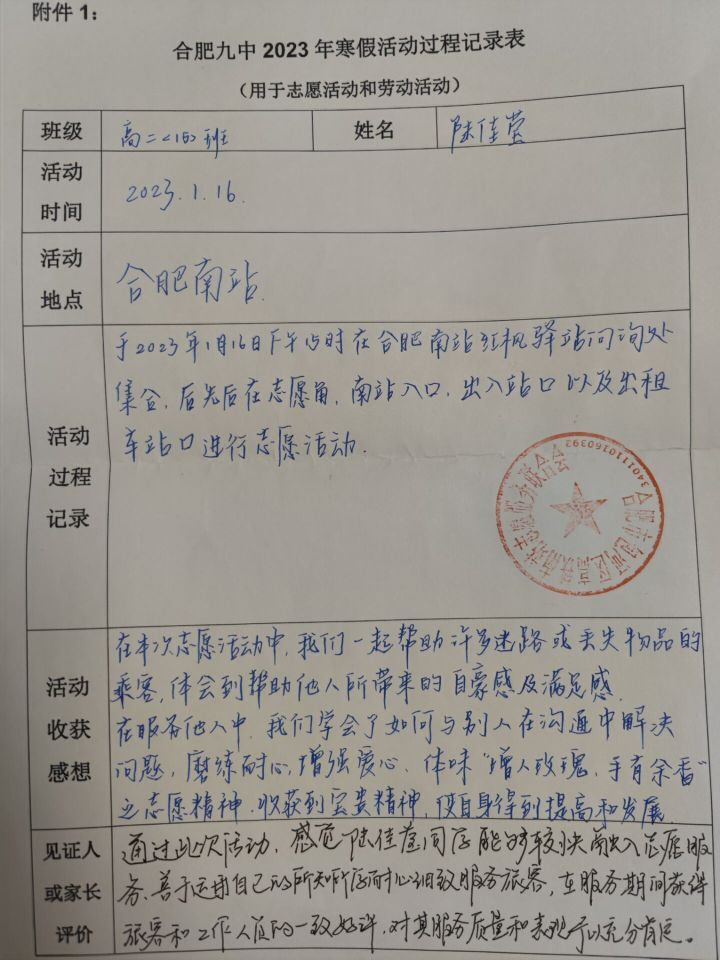 附件 1：
合肥九中 2023 年寒假活动过程记录表
（用于志愿活动和劳动活动）
班级 高二<15>班 姓名 陆佳莹
活动时间 2023.1.16.
活动地点 合肥南站.
活动过程记录
于2023年1月16日下午15时在合肥南站红枫驿站问询处
集合, 后先后在志愿角, 南站入口, 出入站口以及出租
车站口进行志愿活动.
34011110160392
活动收获感想
在本次志愿活动中, 我们一起帮助许多迷路或丢失物品的
乘客, 体会到帮助他人所带来的自豪感及满足感.
在服务他人中, 我们学会了如何与别人在沟通中解决
问题, 磨练耐心, 增强爱心. 体味“赠人玫瑰, 手有余香”
之志愿精神. 收获到宝贵精神, 使自身得到提高和发展.
见证人或家长评价
通过此次活动, 感觉陆佳莹同学能够较快融入志愿服
务. 善于运用自己的所知所学耐心细致服务旅客, 在服务期间获得
旅客和工作人员的一致好评, 对其服务质量和表现予以充分肯定。